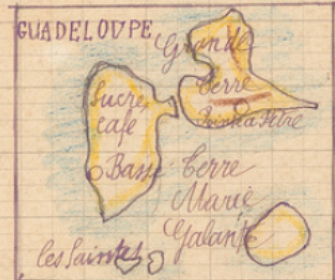 GUADELOUPE
Grande
Terre
Pointe à Pitre
Sucre,
café
Basse Terre
Marie
Galante
les Saintes